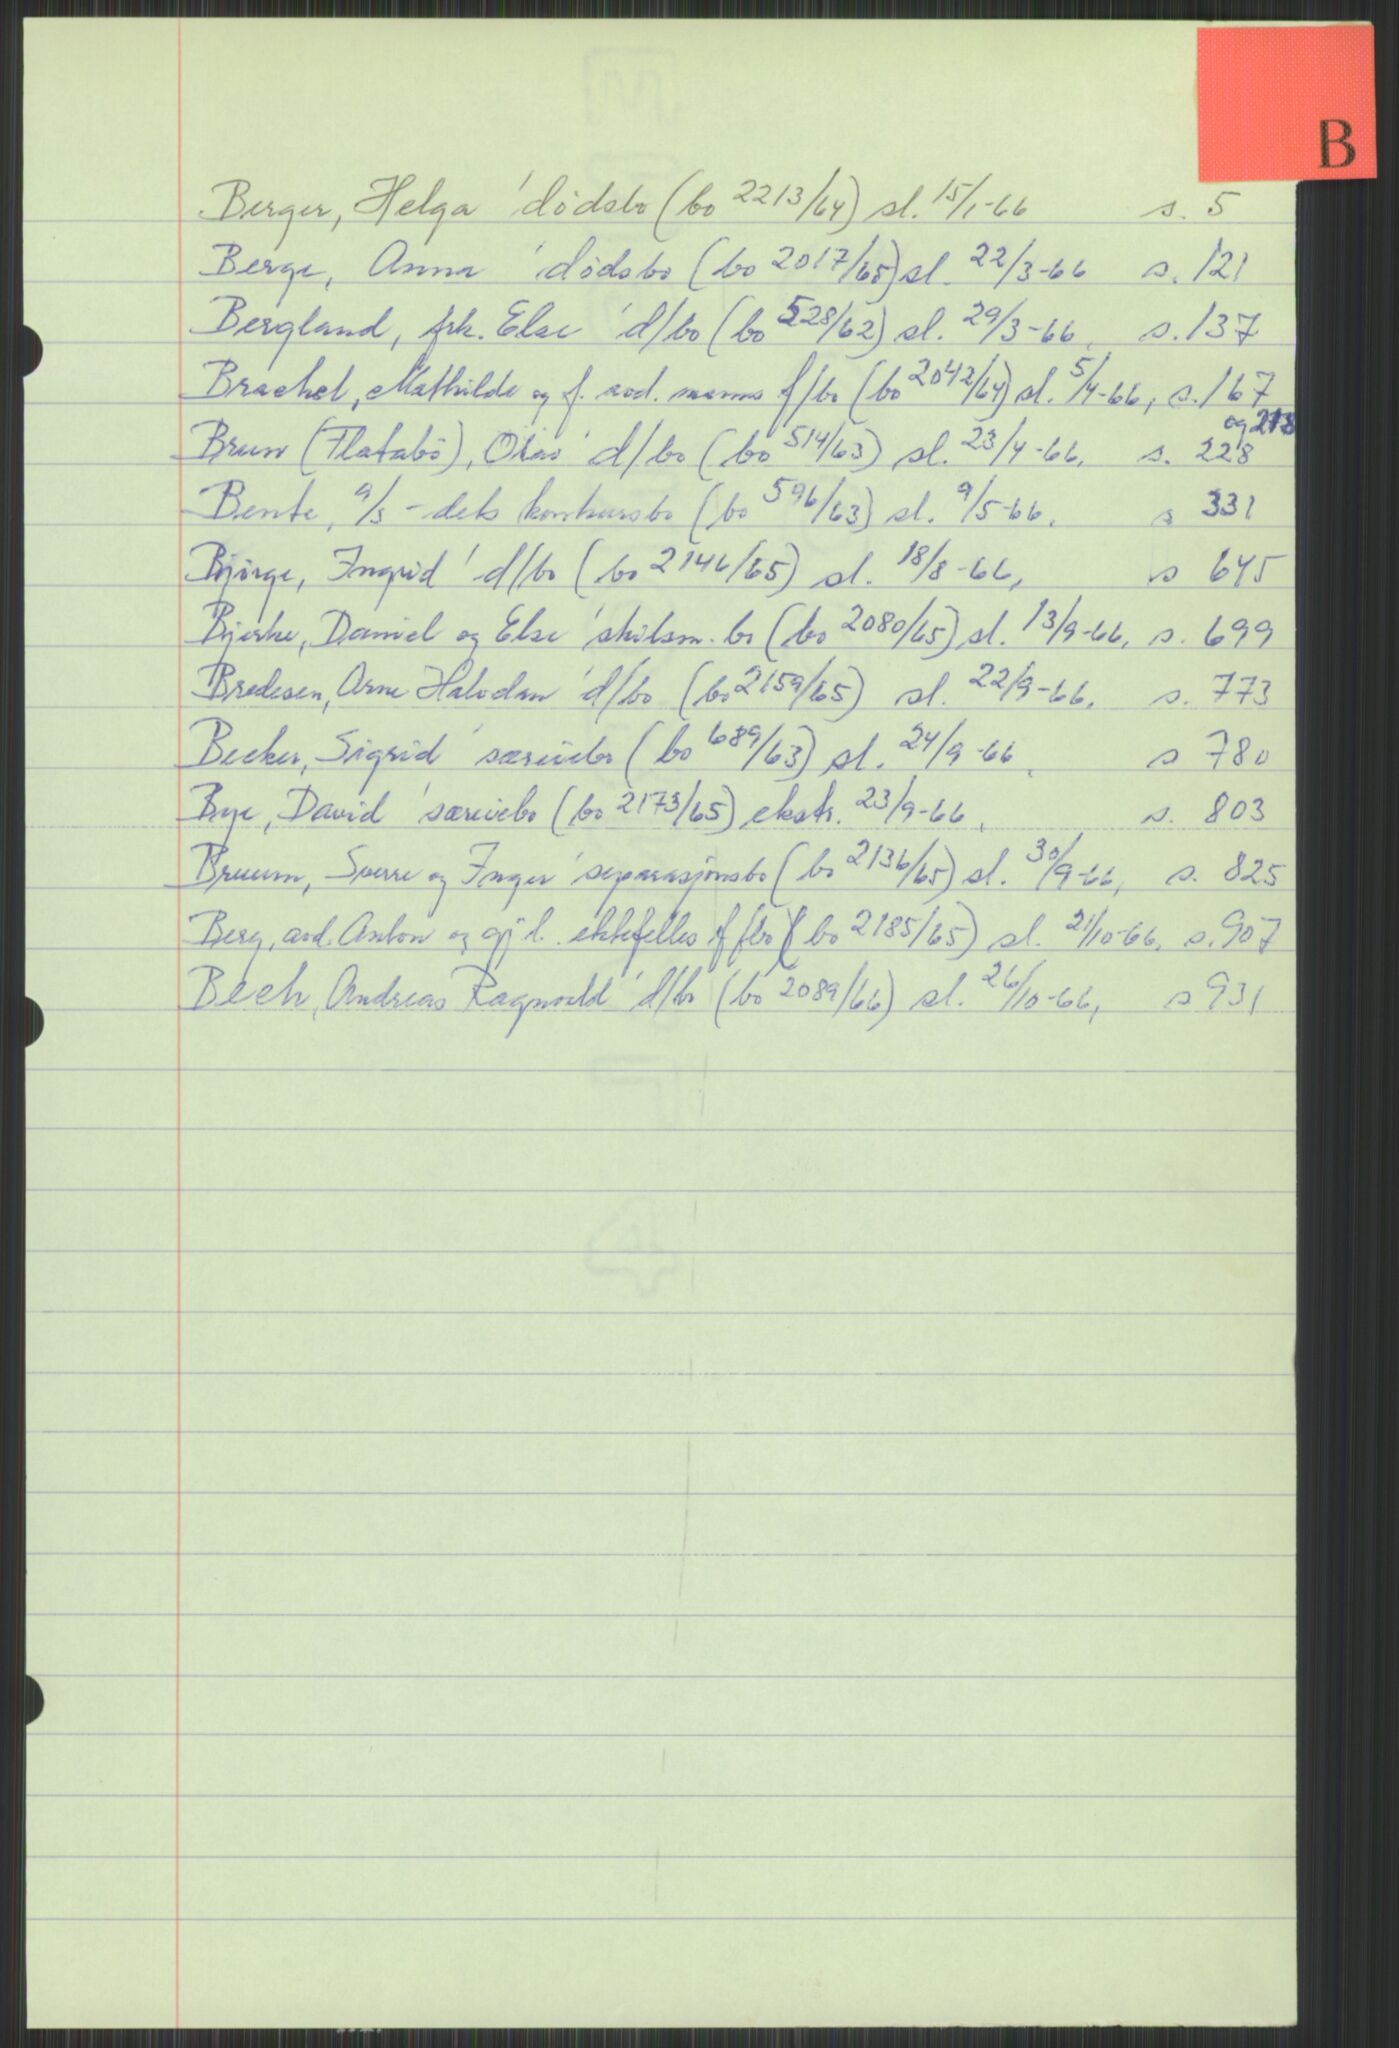 B
Berger, Helga ' dödsbo (bo 2213/64) sl. 15/1-66 s. 5
Berge, Anna ' dödsbo (bo 2017/65) sl. 22/3-66 s. 121
Bergland, frk. Else ' d/bo (bo 528/62) sl. 29/3-66, s. 137
Brachel, Mathilde og f. avd. manns f/bo (bo 2042/64) sl. 5/4-66, s. 167
og 218
Brun (Flatabö), Olav ' d/bo (bo 514/63) sl. 23/4-66, s. 228
Bente, a/s - dets konkursbo (bo 596/63) sl. 9/5-66, s 331
Björge, Ingrid ' d/bo (bo 2146/65) sl. 18/8-66, s 645
Bjerke, Daniel og Else ' skilsm. bo (bo 2080/65) sl. 13/9-66, s. 699
Bredesen, Arne Halvdan ' d/bo (bo 2159/65) sl. 22/9-66, s. 773
Becker, Sigrid ' særeiebo (bo 689/63) sl. 24/9-66, s 780
Bye, David ' særeiebo (bo 2173/65) ekstr. 23/9-66, s. 803
Bruum, Sverre og Inger ' separasjonsbo (bo 2136/65) sl. 30/9-66, s. 825
Berg, avd. Anton og gj.l. ektefelles f/bo (bo 2185/65) sl. 21/10-66, s. 907
Bech, Andreas Ragnvald ' d/bo (bo 2089/66) sl. 26/10-66, s 931